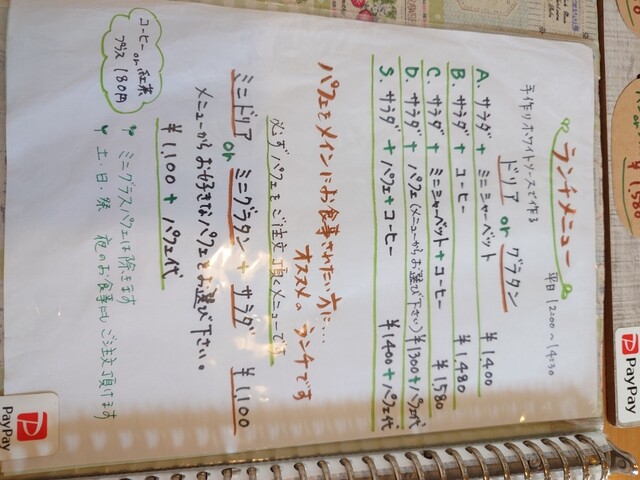 ランチメニュー
平日 12:00〜14:30
手作りホワイトソースで作る
ドリア or グラタン
A. サラダ + ミニシャーベット ¥1400
B. サラダ + コーヒー ¥1,480
C. サラダ + ミニシャーベット + コーヒー ¥1,580
D. サラダ + パフェ (メニューからお選び下さい) ¥1300 + パフェ代
S. サラダ + パフェ + コーヒー ¥1400 + パフェ代
パフェをメインにお食事されたい方に...
オススメの ランチです
必ずパフェをご注文頂くメニューです
ミニドリア or ミニグラタン + サラダ ¥1,100
メニューからお好きなパフェをお選び下さい。
¥1,100 + パフェ代
ミニグラスパフェは除きます
土・日・祭 夜のお食事にもご注文頂けます
コーヒー
or 紅茶
プラス 180円
PayPay
PayPay